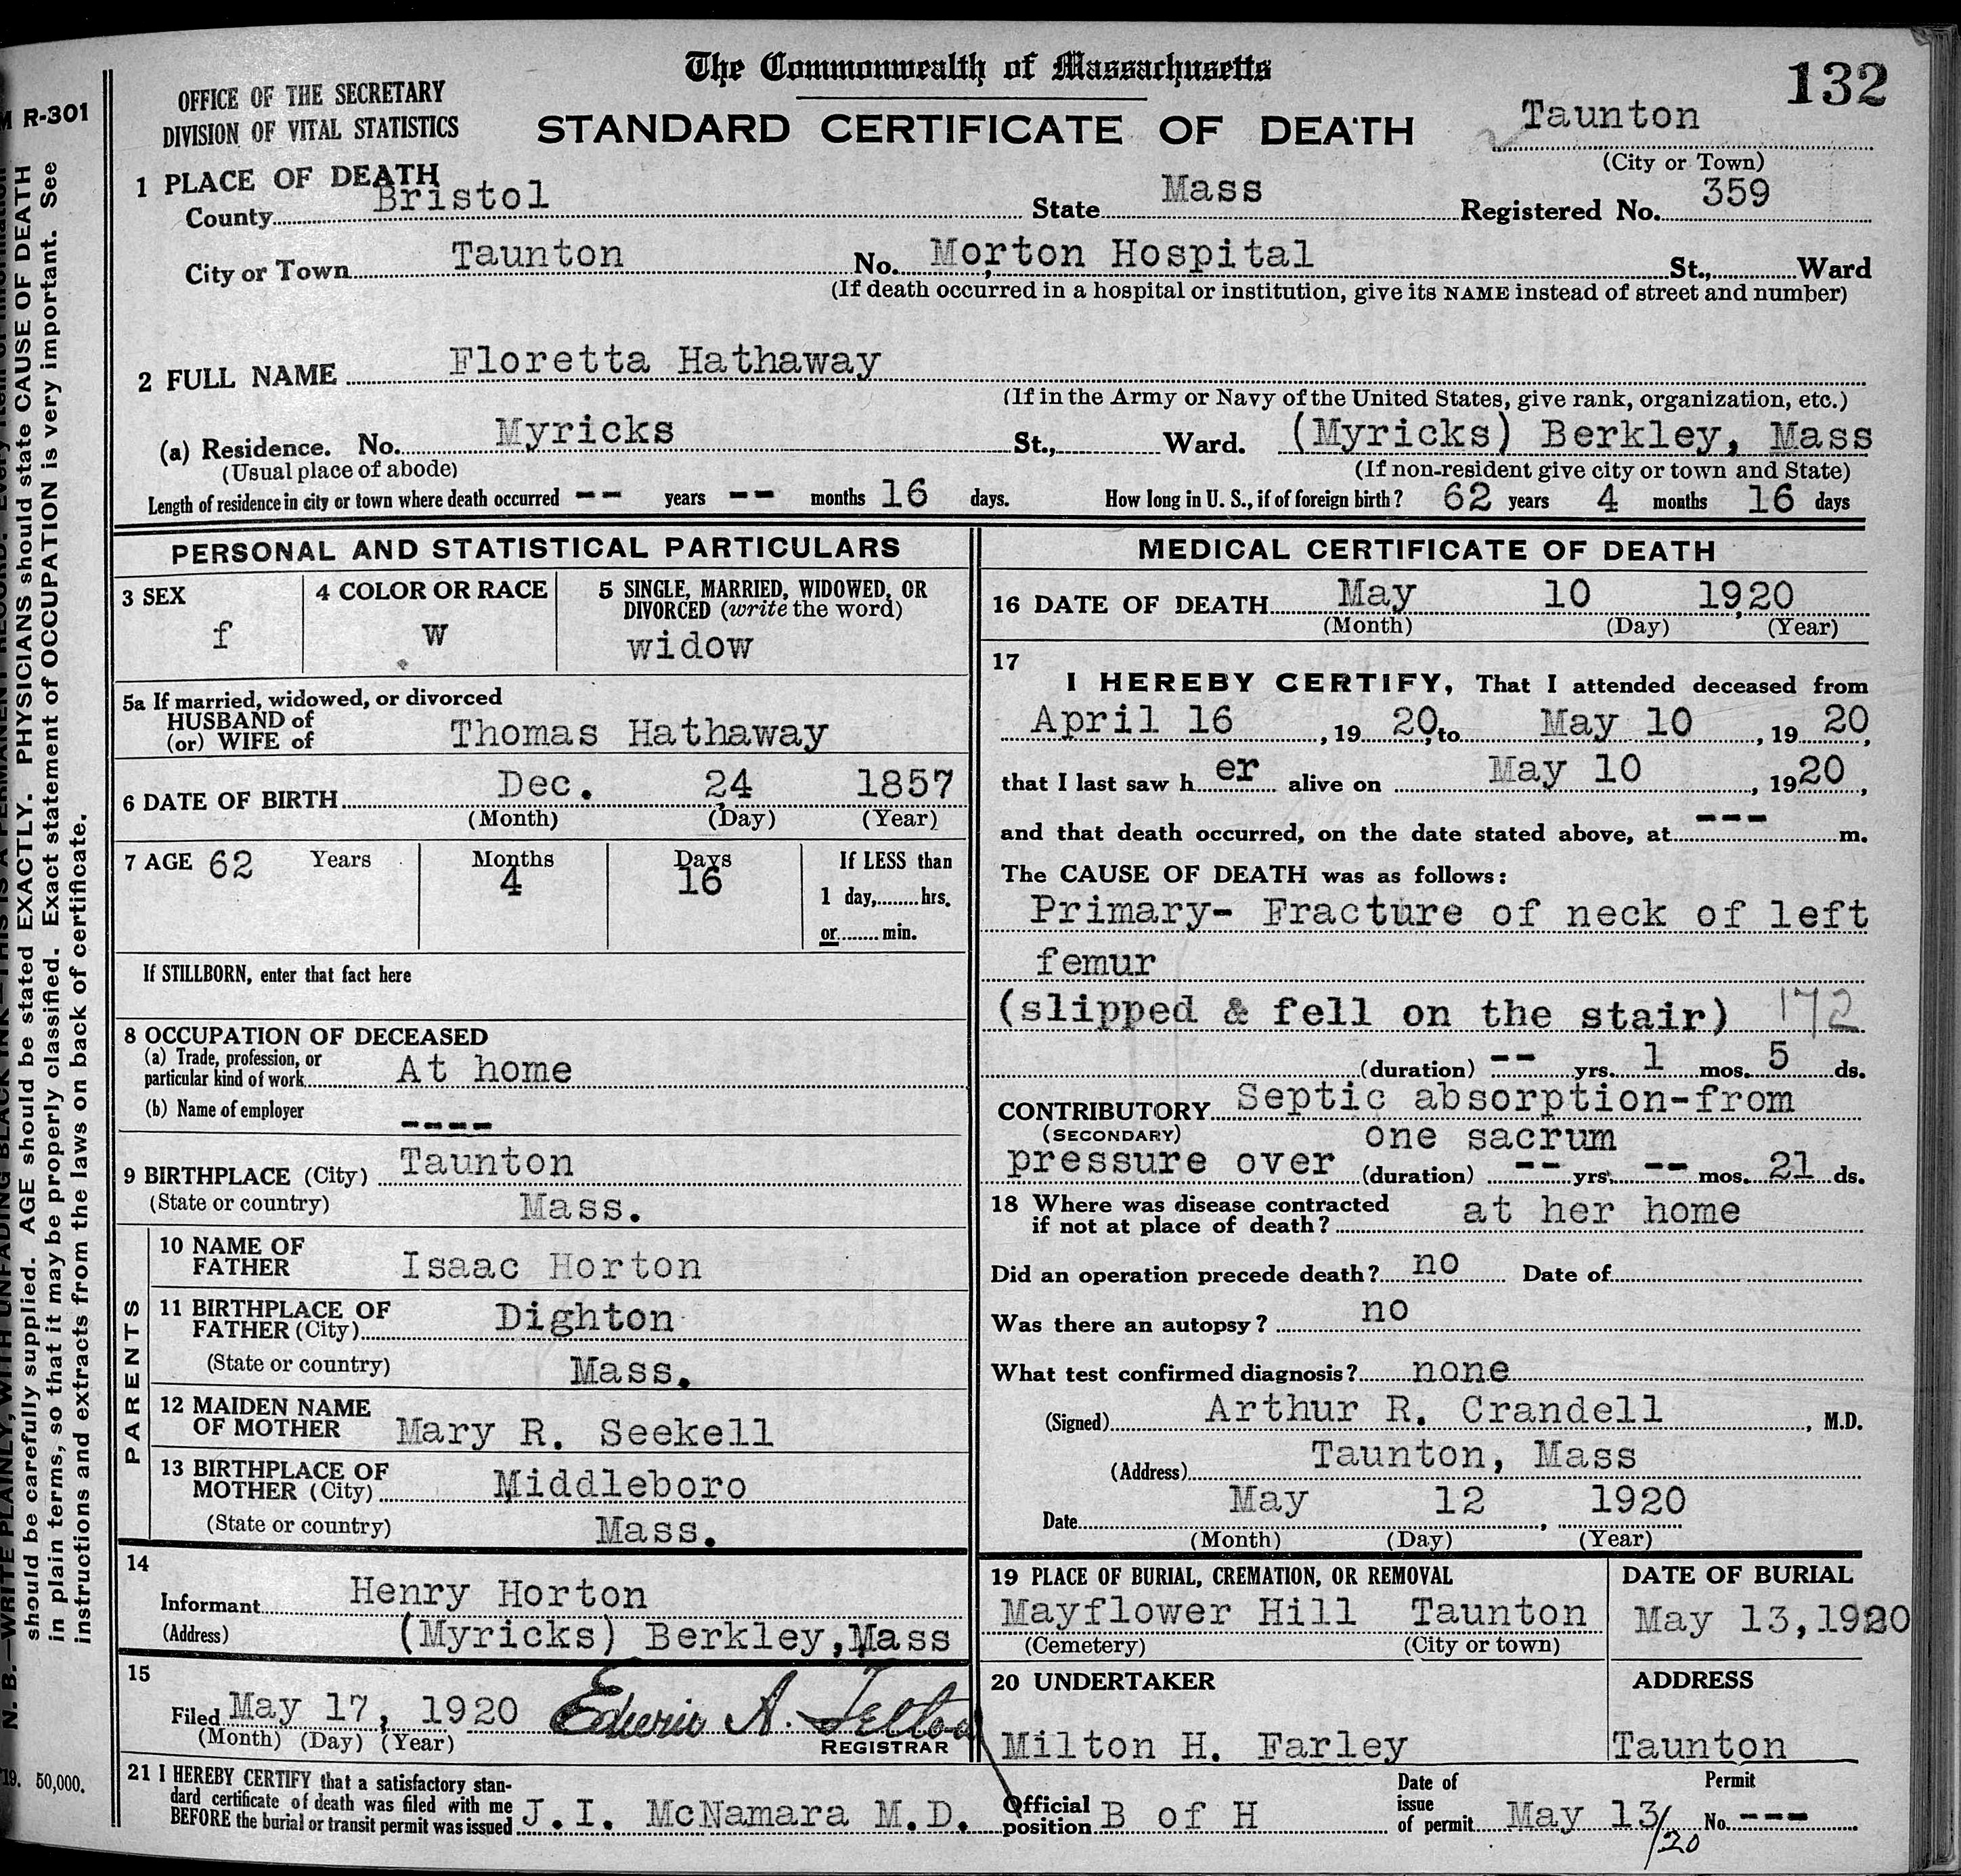 The Commonwealth of Massachusetts
132
OFFICE OF THE SECRETARY
DIVISION OF VITAL STATISTICS
STANDARD CERTIFICATE OF DEATH
Taunton
(City or Town)
M R-301
1 PLACE OF DEATH
County Bristol State Mass Registered No. 359
City or Town Taunton No. Morton Hospital St., Ward
(If death occurred in a hospital or institution, give its NAME instead of street and number)
2 FULL NAME Floretta Hathaway
(If in the Army or Navy of the United States, give rank, organization, etc.)
(a) Residence. No. Myricks St., Ward. (Myricks) Berkley, Mass
(Usual place of abode) (If non-resident give city or town and State)
Length of residence in city or town where death occurred -- years -- months 16 days. How long in U. S., if of foreign birth? 62 years 4 months 16 days
PERSONAL AND STATISTICAL PARTICULARS
3 SEX
f
4 COLOR OR RACE
w
5 SINGLE, MARRIED, WIDOWED, OR
DIVORCED (write the word)
widow
5a If married, widowed, or divorced
HUSBAND of
(or) WIFE of Thomas Hathaway
6 DATE OF BIRTH Dec. 24 1857
(Month) (Day) (Year)
7 AGE 62 Years
Months
4
Days
16
If LESS than
1 day,........hrs.
or........min.
If STILLBORN, enter that fact here
8 OCCUPATION OF DECEASED
(a) Trade, profession, or
particular kind of work At home
(b) Name of employer ----
9 BIRTHPLACE (City) Taunton
(State or country) Mass.
PARENTS
10 NAME OF
FATHER Isaac Horton
11 BIRTHPLACE OF
FATHER (City) Dighton
(State or country) Mass.
12 MAIDEN NAME
OF MOTHER Mary R. Seekell
13 BIRTHPLACE OF
MOTHER (City) Middleboro
(State or country) Mass.
14
Informant Henry Horton
(Address) (Myricks) Berkley, Mass
15
Filed May 17, 1920 Edwin A. Tetlow
(Month) (Day) (Year) REGISTRAR
MEDICAL CERTIFICATE OF DEATH
16 DATE OF DEATH May 10 1920
(Month) (Day) (Year)
17
I HEREBY CERTIFY, That I attended deceased from
April 16, 19 20, to May 10, 19 20,
that I last saw h er alive on May 10, 19 20,
and that death occurred, on the date stated above, at --- m.
The CAUSE OF DEATH was as follows:
Primary- Fracture of neck of left
femur
(slipped & fell on the stair) 172
(duration) -- yrs. 1 mos. 5 ds.
CONTRIBUTORY Septic absorption-from
(SECONDARY) one sacrum
pressure over (duration) -- yrs. -- mos. 21 ds.
18 Where was disease contracted
if not at place of death? at her home
Did an operation precede death? no Date of
Was there an autopsy? no
What test confirmed diagnosis? none
(Signed) Arthur R. Crandell, M.D.
(Address) Taunton, Mass
Date May 12, 1920
(Month) (Day) (Year)
19 PLACE OF BURIAL, CREMATION, OR REMOVAL
Mayflower Hill Taunton
(Cemetery) (City or town)
DATE OF BURIAL
May 13, 1920
20 UNDERTAKER
Milton H. Farley
ADDRESS
Taunton
21 I HEREBY CERTIFY that a satisfactory stan-
dard certificate of death was filed with me
BEFORE the burial or transit permit was issued J. I. McNamara M.D.
Official
position B of H
Date of
issue
of permit May 13/20
Permit
No. ---
N. B.—WRITE PLAINLY, WITH UNFADING BLACK INK—THIS IS A PERMANENT RECORD. Every item of information
should be carefully supplied. AGE should be stated EXACTLY. PHYSICIANS should state CAUSE OF DEATH
in plain terms, so that it may be properly classified. Exact statement of OCCUPATION is very important. See
instructions and extracts from the laws on back of certificate.
'19. 50,000.